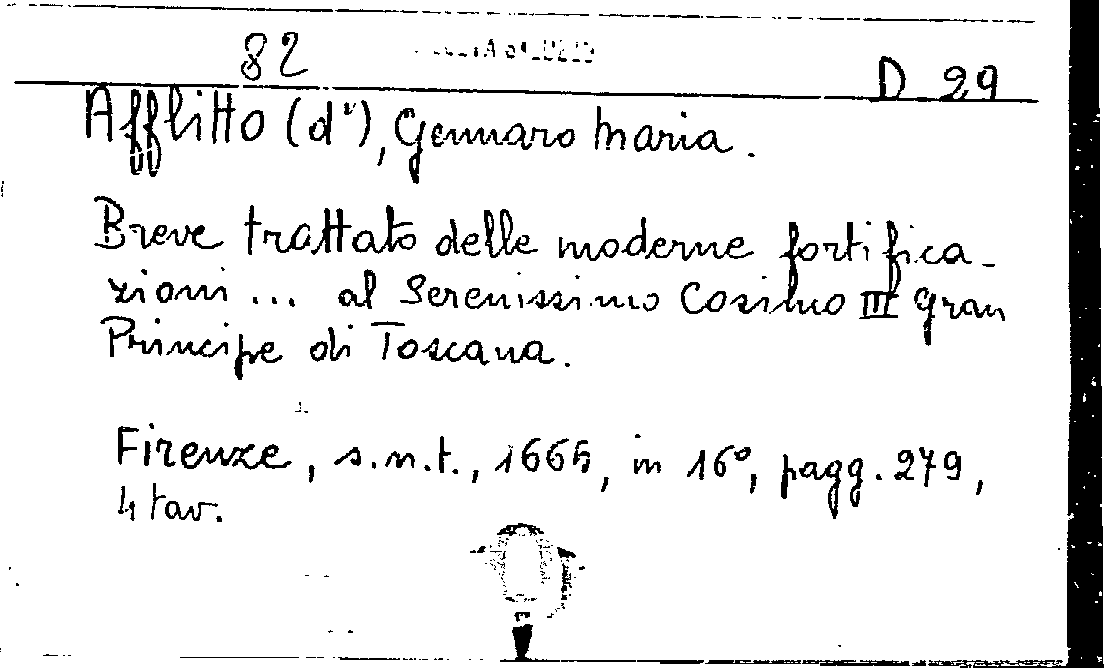 82
D 29
Afflitto (d'), Gennaro Maria.
Breve trattato delle moderne fortifica-
zioni ... al Serenissimo Cosimo III gran
Principe di Toscana.
Firenze, s.n.t., 1665, in 16°, pagg. 279,
4 tav.